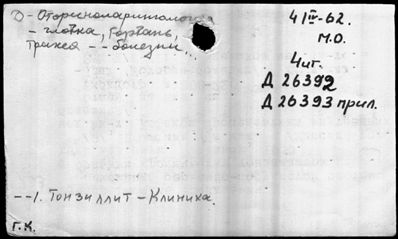 О - Оториноларинголог
- глотка, гортань,
трахея -- болезни
41 III-62.
м.о.
4иг.
Д 26392
Д 26393 прил.
--1. Тонзиллит - Клиника.
Г.К.